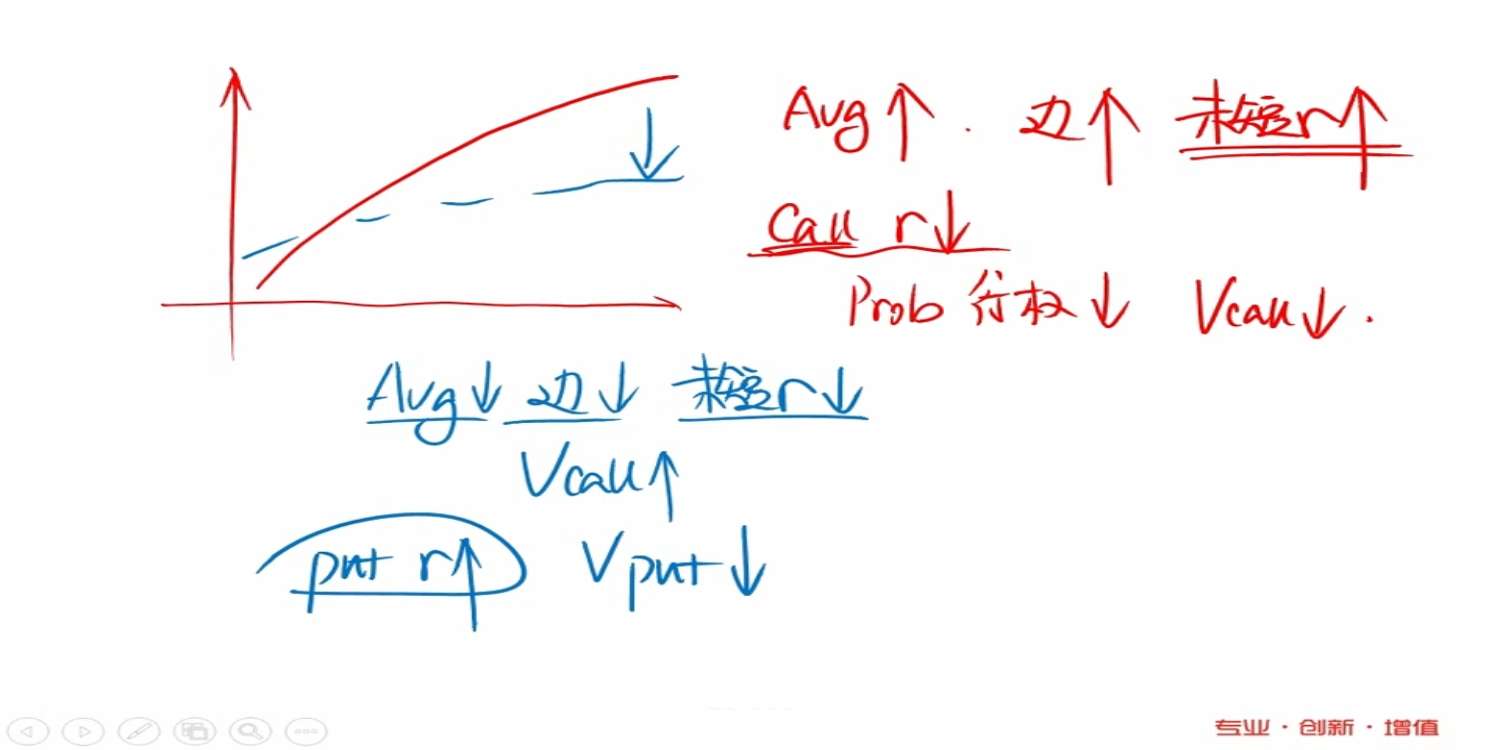 Avg↑. 边↑ 未短r↑
Call r↓
Prob 行权↓ Vcall↓.
Avg↓ 边↓ 未短r↓
Vcall↑
put r↑ Vput↓
专业·创新·增值